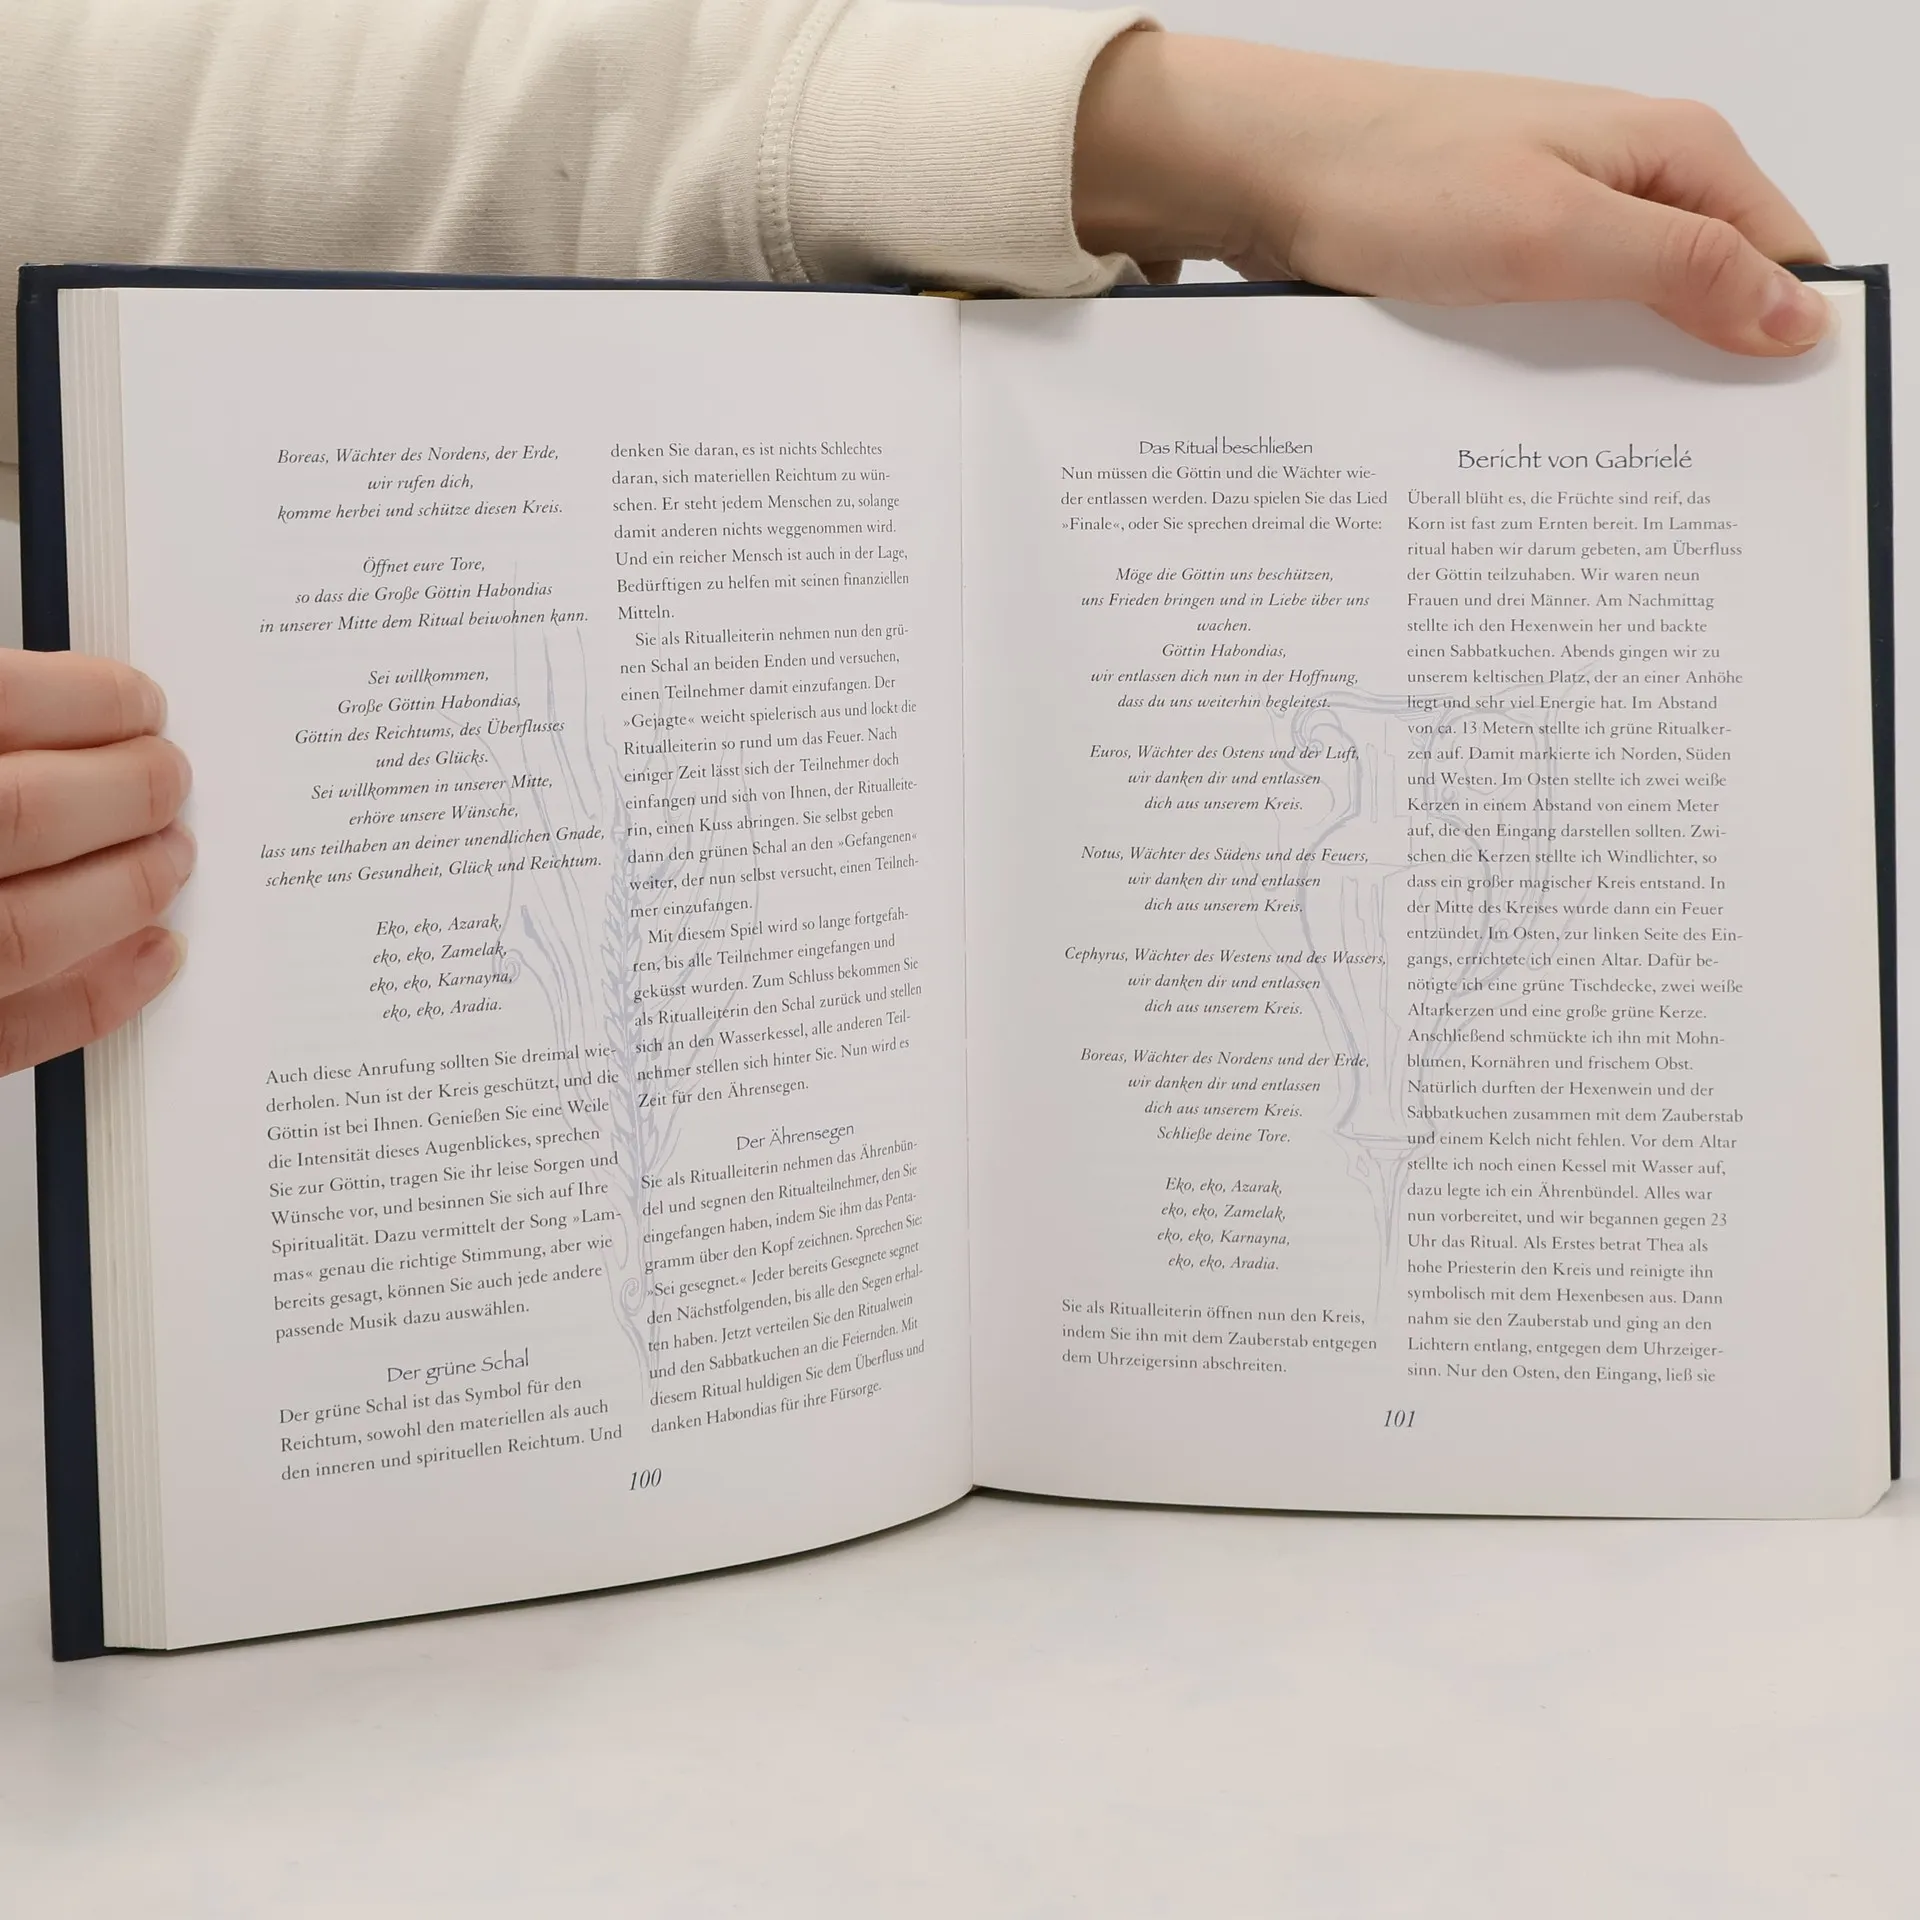 Boreas, Wächter des Nordens, der Erde,
wir rufen dich,
komme herbei und schütze diesen Kreis.
Öffnet eure Tore,
so dass die Große Göttin Habondias
in unserer Mitte dem Ritual beiwohnen kann.
Sei willkommen,
Große Göttin Habondias,
Göttin des Reichtums, des Überflusses
und des Glücks.
Sei willkommen in unserer Mitte,
erhöre unsere Wünsche,
lass uns teilhaben an deiner unendlichen Gnade,
schenke uns Gesundheit, Glück und Reichtum.
Eko, eko, Azarak,
eko, eko, Zamelak,
eko, eko, Karnayna,
eko, eko, Aradia.
Auch diese Anrufung sollten Sie dreimal wie-
derholen. Nun ist der Kreis geschützt, und die
Göttin ist bei Ihnen. Genießen Sie eine Weile
die Intensität dieses Augenblickes, sprechen
Sie zur Göttin, tragen Sie ihr leise Sorgen und
Wünsche vor, und besinnen Sie sich auf Ihre
Spiritualität. Dazu vermittelt der Song »Lam-
mas« genau die richtige Stimmung, aber wie
bereits gesagt, können Sie auch jede andere
passende Musik dazu auswählen.
Der grüne Schal
Der grüne Schal ist das Symbol für den
Reichtum, sowohl den materiellen als auch
den inneren und spirituellen Reichtum. Und
denken Sie daran, es ist nichts Schlechtes
daran, sich materiellen Reichtum zu wün-
schen. Er steht jedem Menschen zu, solange
damit anderen nichts weggenommen wird.
Und ein reicher Mensch ist auch in der Lage,
Bedürftigen zu helfen mit seinen finanziellen
Mitteln.
Sie als Ritualleiterin nehmen nun den grü-
nen Schal an beiden Enden und versuchen,
einen Teilnehmer damit einzufangen. Der
»Gejagte« weicht spielerisch aus und lockt die
Ritualleiterin so rund um das Feuer. Nach
einiger Zeit lässt sich der Teilnehmer doch
einfangen und sich von Ihnen, der Ritualleite-
rin, einen Kuss abringen. Sie selbst geben
dann den grünen Schal an den »Gefangenen«
weiter, der nun selbst versucht, einen Teilneh-
mer einzufangen.
Mit diesem Spiel wird so lange fortgefah-
ren, bis alle Teilnehmer eingefangen und
geküsst wurden. Zum Schluss bekommen Sie
als Ritualleiterin den Schal zurück und stellen
sich an den Wasserkessel, alle anderen Teil-
nehmer stellen sich hinter Sie. Nun wird es
Zeit für den Ährensegen.
Der Ährensegen
Sie als Ritualleiterin nehmen das Ährenbün-
del und segnen den Ritualteilnehmer, den Sie
eingefangen haben, indem Sie ihm das Penta-
gramm über den Kopf zeichnen. Sprechen Sie:
»Sei gesegnet.« Jeder bereits Gesegnete segnet
den Nächstfolgenden, bis alle den Segen erhal-
ten haben. Jetzt verteilen Sie den Ritualwein
und den Sabbatkuchen an die Feiernden. Mit
diesem Ritual huldigen Sie dem Überfluss und
danken Habondias für ihre Fürsorge.
100
Das Ritual beschließen
Nun müssen die Göttin und die Wächter wie-
der entlassen werden. Dazu spielen Sie das Lied
»Finale«, oder Sie sprechen dreimal die Worte:
Möge die Göttin uns beschützen,
uns Frieden bringen und in Liebe über uns
wachen.
Göttin Habondias,
wir entlassen dich nun in der Hoffnung,
dass du uns weiterhin begleitest.
Euros, Wächter des Ostens und der Luft,
wir danken dir und entlassen
dich aus unserem Kreis.
Notus, Wächter des Südens und des Feuers,
wir danken dir und entlassen
dich aus unserem Kreis.
Cephyrus, Wächter des Westens und des Wassers,
wir danken dir und entlassen
dich aus unserem Kreis.
Boreas, Wächter des Nordens und der Erde,
wir danken dir und entlassen
dich aus unserem Kreis.
Schließe deine Tore.
Eko, eko, Azarak,
eko, eko, Zamelak,
eko, eko, Karnayna,
eko, eko, Aradia.
Sie als Ritualleiterin öffnen nun den Kreis,
indem Sie ihn mit dem Zauberstab entgegen
dem Uhrzeigersinn abschreiten.
Bericht von Gabrielé
Überall blüht es, die Früchte sind reif, das
Korn ist fast zum Ernten bereit. Im Lammas-
ritual haben wir darum gebeten, am Überfluss
der Göttin teilzuhaben. Wir waren neun
Frauen und drei Männer. Am Nachmittag
stellte ich den Hexenwein her und backte
einen Sabbatkuchen. Abends gingen wir zu
unserem keltischen Platz, der an einer Anhöhe
liegt und sehr viel Energie hat. Im Abstand
von ca. 13 Metern stellte ich grüne Ritualker-
zen auf. Damit markierte ich Norden, Süden
und Westen. Im Osten stellte ich zwei weiße
Kerzen in einem Abstand von einem Meter
auf, die den Eingang darstellen sollten. Zwi-
schen die Kerzen stellte ich Windlichter, so
dass ein großer magischer Kreis entstand. In
der Mitte des Kreises wurde dann ein Feuer
entzündet. Im Osten, zur linken Seite des Ein-
gangs, errichtete ich einen Altar. Dafür be-
nötigte ich eine grüne Tischdecke, zwei weiße
Altarkerzen und eine große grüne Kerze.
Anschließend schmückte ich ihn mit Mohn-
blumen, Kornähren und frischem Obst.
Natürlich durften der Hexenwein und der
Sabbatkuchen zusammen mit dem Zauberstab
und einem Kelch nicht fehlen. Vor dem Altar
stellte ich noch einen Kessel mit Wasser auf,
dazu legte ich ein Ährenbündel. Alles war
nun vorbereitet, und wir begannen gegen 23
Uhr das Ritual. Als Erstes betrat Thea als
hohe Priesterin den Kreis und reinigte ihn
symbolisch mit dem Hexenbesen aus. Dann
nahm sie den Zauberstab und ging an den
Lichtern entlang, entgegen dem Uhrzeiger-
sinn. Nur den Osten, den Eingang, ließ sie
101